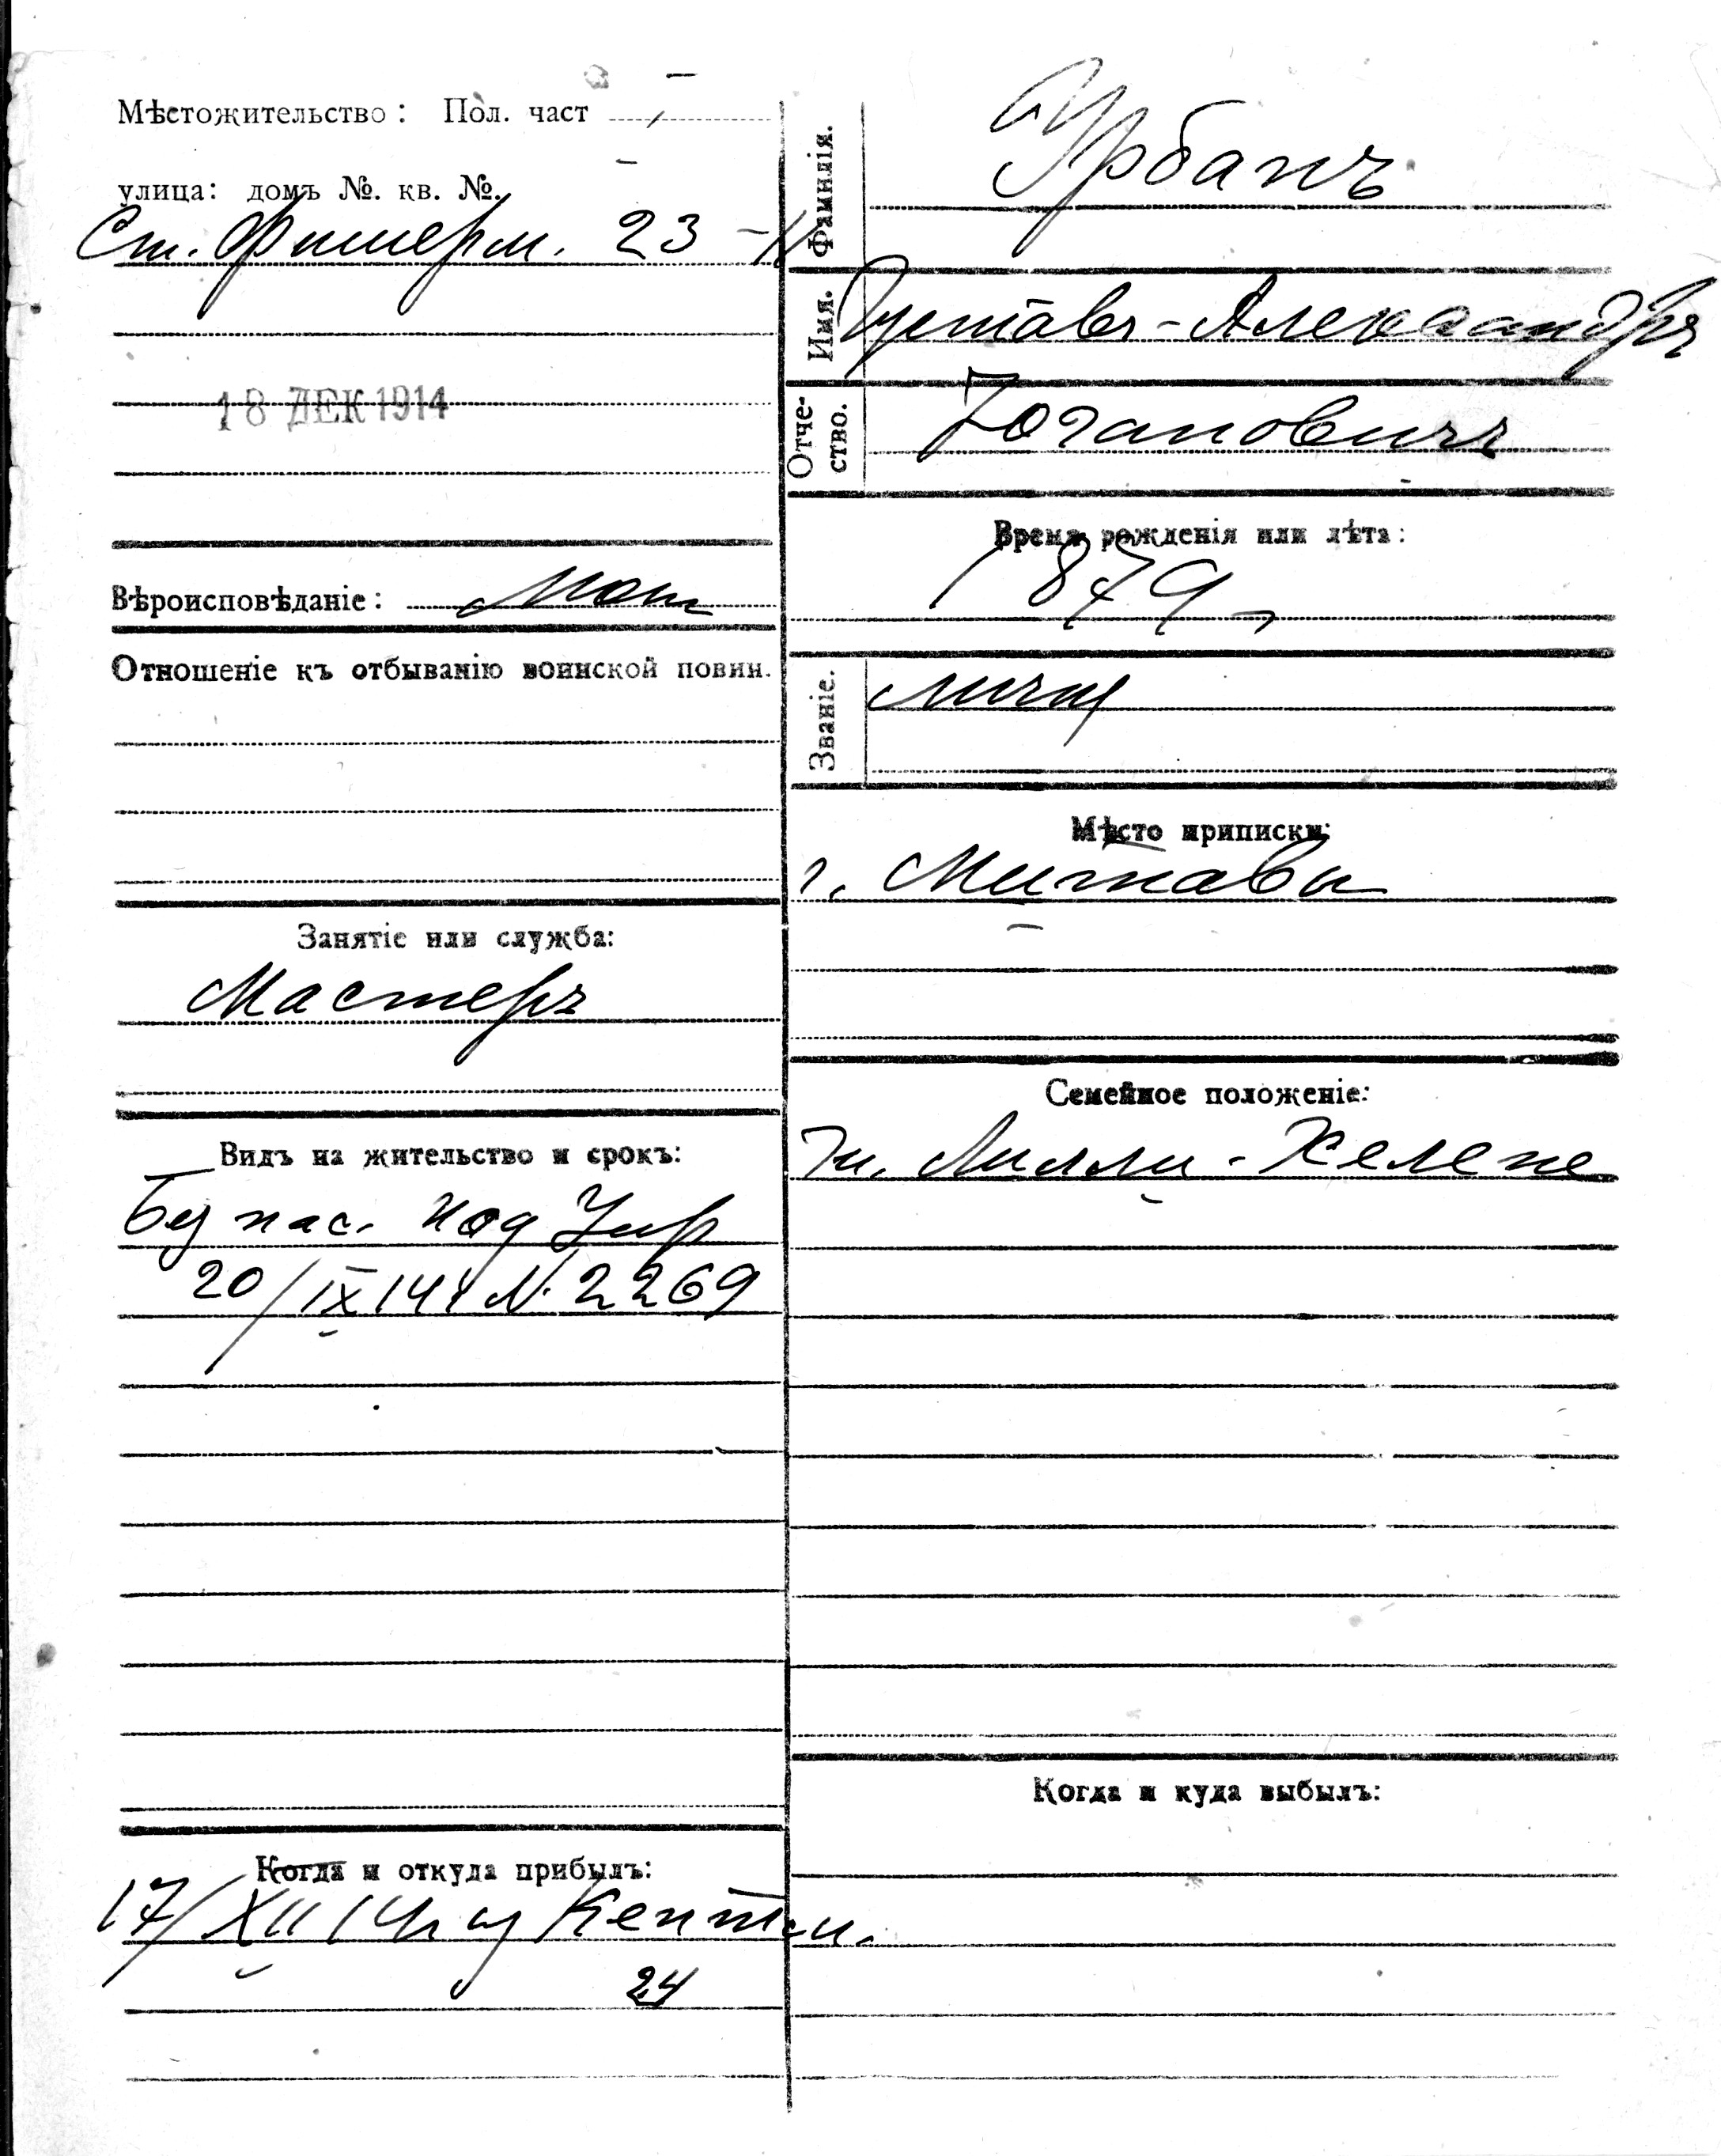 Мѣстожительство: Пол. част
улица: домъ №. кв. №.
Ст. Фишерм. 23 - 11
18 ДЕК 1914
Вѣроисповѣданіе: лют
Отношеніе къ отбыванію воинской повин.
Занятіе или служба:
Мастеръ
Видъ на жительство и срокъ:
Без пас.
20/IX 14 N. 2269
Когда и откуда прибылъ:
17/XII 14
24
Фамилія.
Урбанъ
Имя.
Густавъ-Александръ
Отче-
ство.
Іогановичъ
Время рожденія или лѣта:
1879
Званіе.
Мѣсто приписки:
г. Митавы
Семейное положеніе:
ж. Лилли-Хелене
Когда и куда выбылъ: